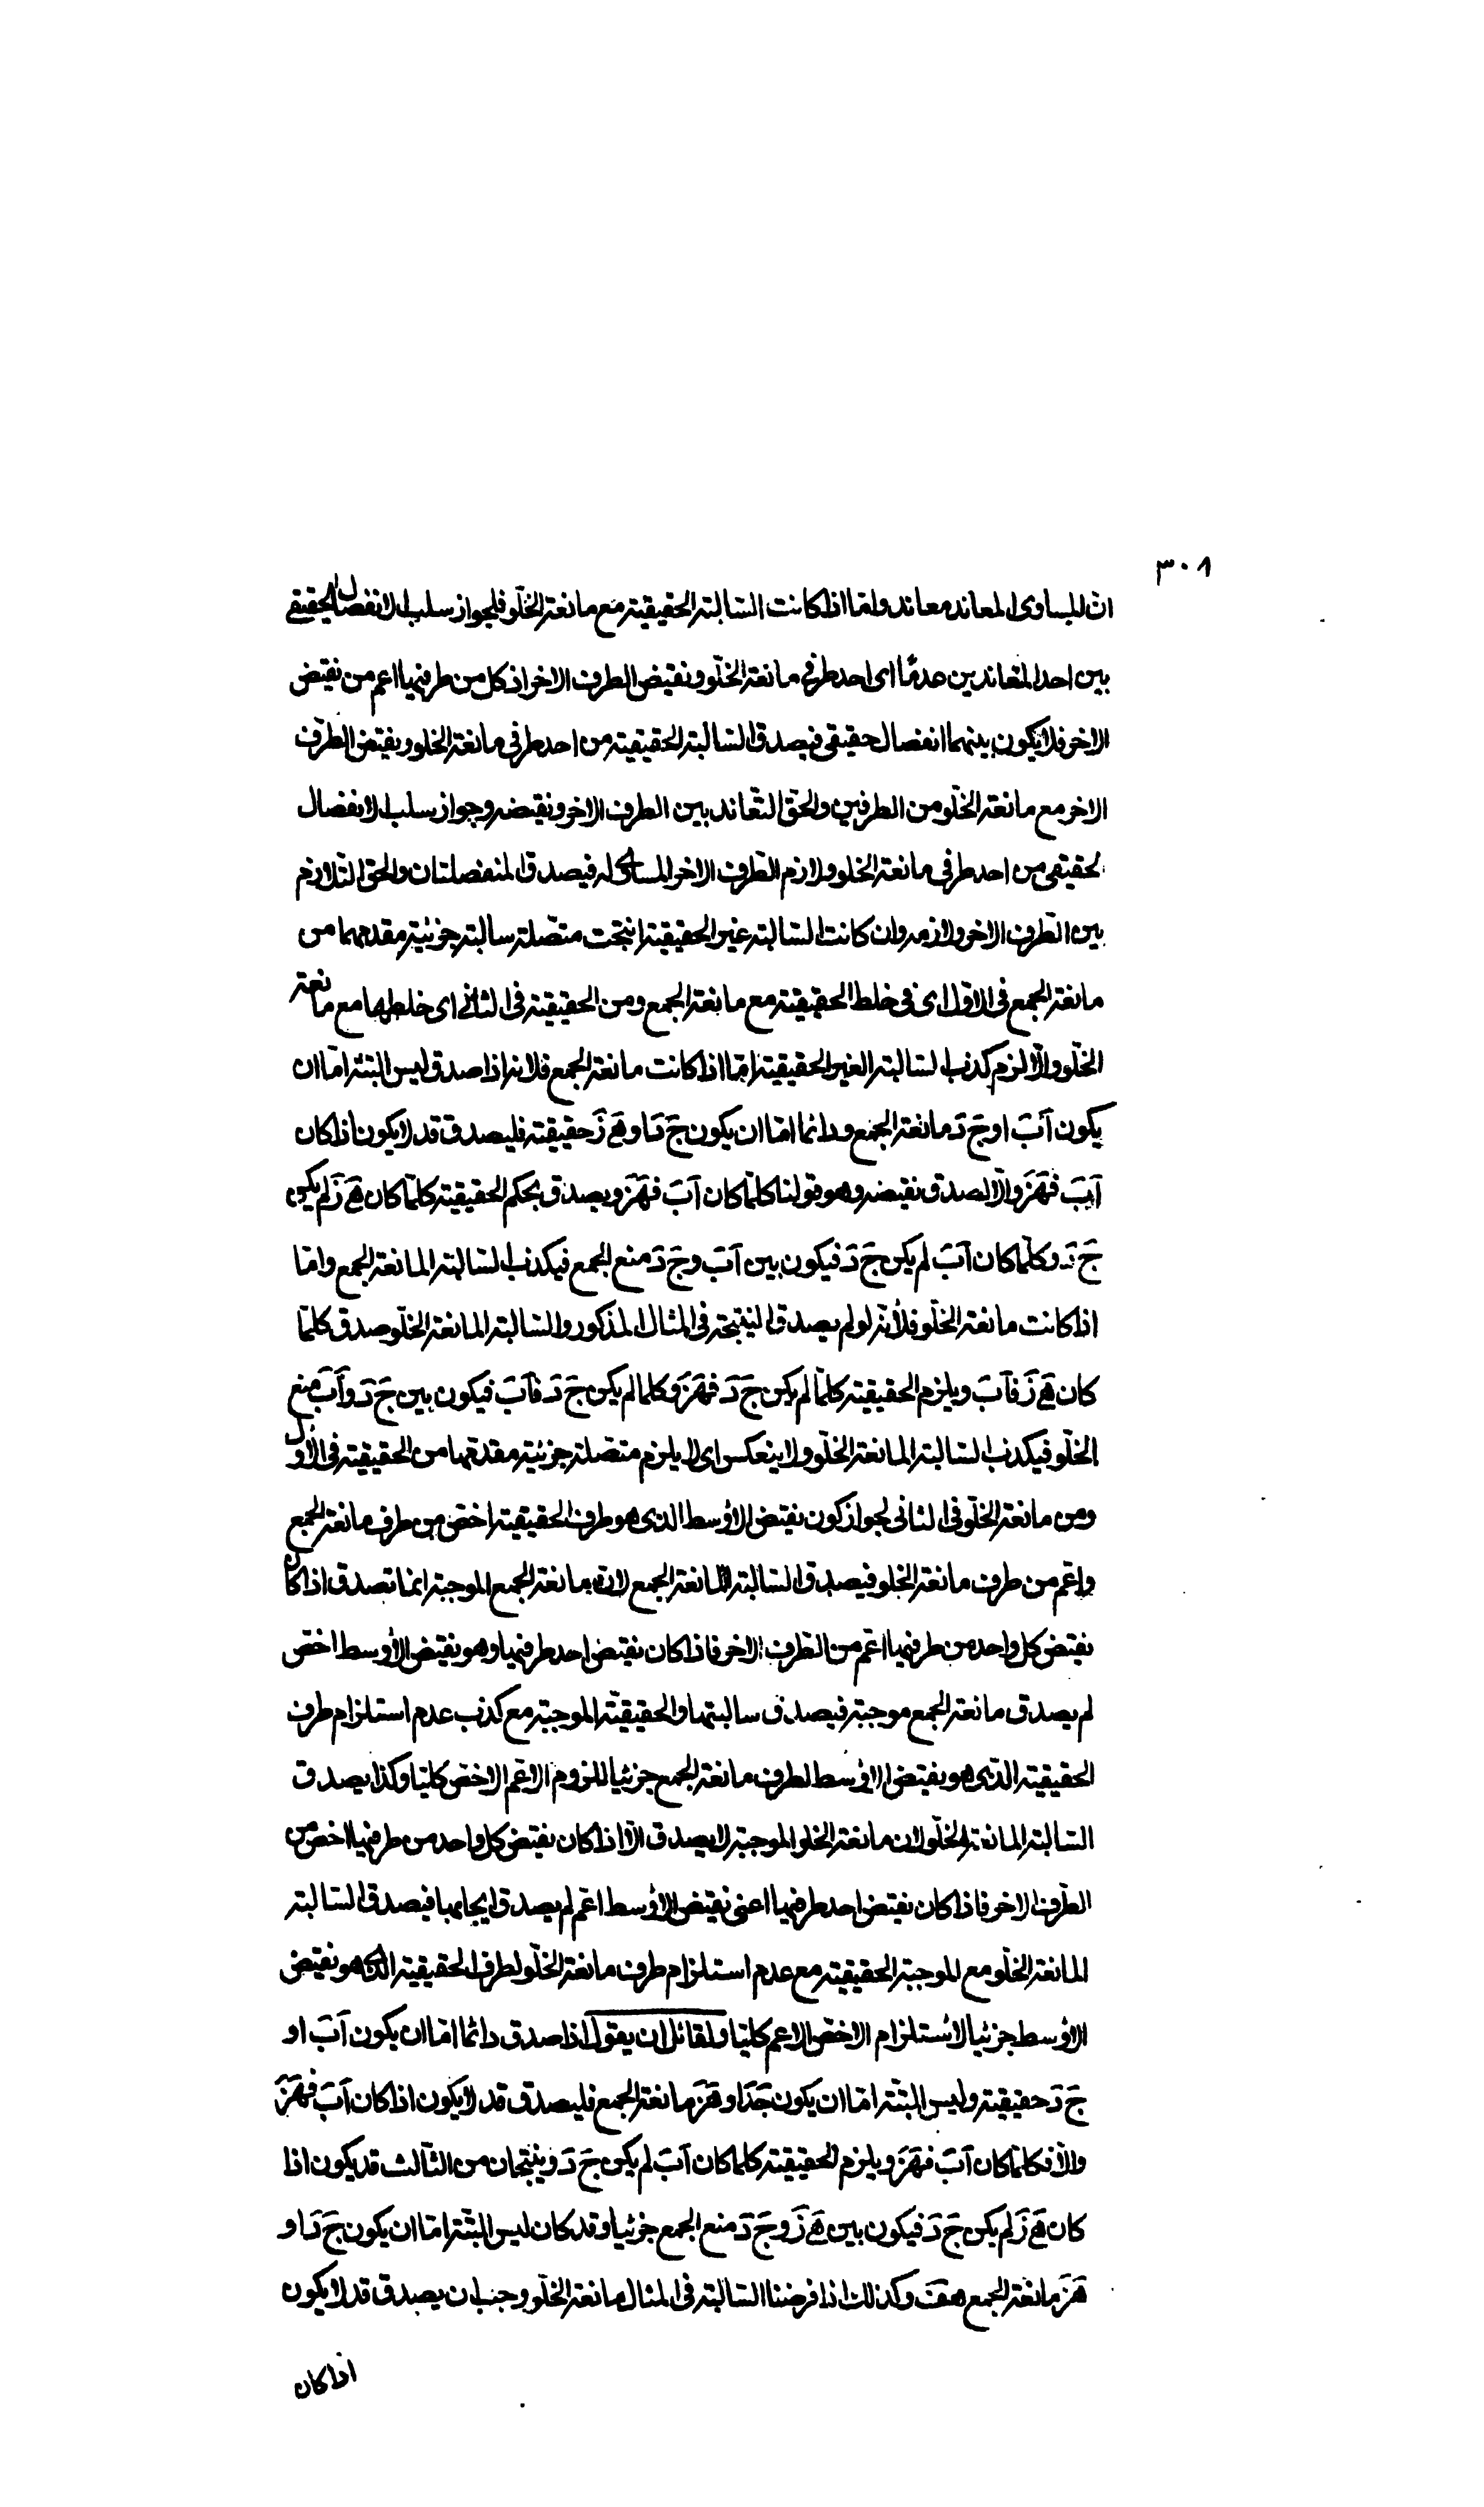 ٣٠٨
ان للمساوى المعاند معاند واما اذا كانت السّالبة الحقيقية مع مانعة الخلّو فلجواز سلب الانفصال الحقيقى
بين احد المتعاندين صدقًا اى احد طرفى مانعة الخلّو ونقيض الطرف الاخر اذ كل من طرفيها اعم من نقيض
الاخر فلا يكون بينهما انفصال حقيقى فيصدق السّالبة الحقيقيّة من احد طرفى مانعة الخلو ونقيض الطّرف
الاخر مع مانعة الخلّو من الطرفين والحق التعاند بين الطرف الاخر ونقيضه وجواز سلب الانفصال
الحقيقى من احد طرفى مانعة الخلو ولازم الطّرف الاخر المساوى له فيصدق المنفصلتان والحق التلازم
بين الطّرف الاخر ولازمه وان كانت السّالبة غير الحقيقيّة انتجت متّصلة سالبة جزئية مقدمهما من
مانعة الجمع فى الاوّل اى فى خلط الحقيقيّة مع مانعة الجمع ومن الحقيقيّة فى الثانى اى خلطها مع مانعة
الخلّو والّا لزم كذب السّالبة الغير الحقيقيّة امّا اذا كانت مانعة الجمع فلانه اذا صدق ليس البتّة امّا ان
يكون آبَ او جَ دَ مانعة الجمع ودائما امّا ان يكون جَ دَ او هَ زَ حقيقيّة فليصدق قد لا يكون اذا كان
آبَ فهَزَ والّا لصدق نقيضه وهو قولنا كلّما كان آبَ فهَزَ ويصدق بحكم الحقيقيّة كلّما كان هَ زَ لم يكن
جَ دَ وكلّما كان آبَ لم يكن جَ دَ فيكون بين آبَ وجَ دَ منع الجمع فيكذب السّالبة المانعة الجمع وامّا
اذا كانت مانعة الخلّو فلأنه لو لم يصدق النتيجة فى المثال المذكور والسّالبة المانعة الخلّو صدق كلّما
كان هَ زَ فآبَ ويلزم الحقيقيّة كلّما لم يكن جَ دَ فهَزَ وكلما لم يكن جَ دَ فآبَ فيكون بين جَ دَ وآبَ منع
الخلّو فيكذب السّالبة المانعة الخلّو ولا ينعكس اى لا يلزم متّصلة جزئية مقدمها من الحقيقيّة فى الاوّل
ومن مانعة الخلّو فى الثانى لجواز كون نقيض الاوسط الذى هو طرف الحقيقيّة اخصّ من طرف مانعة الجمع
واعم من طرف مانعة الخلو فيصدق السّالبة المانعة الجمع لان مانعة الجمع الموجبة انما تصدق اذا كان
نقيض كل واحد من طرفيها اعمّ من الطّرف الاخر فاذا كان نقيض احد طرفيها وهو نقيض الاوسط اخصّ
لم يصدق مانعة الجمع موجبة فيصدق سالبتها والحقيقيّة الموجبة مع كذب عدم استلزام طرف
الحقيقيّة الذى هو نقيض الاوسط لطرف مانعة الجمع جزئيا للزوم الاعّم الاخصّ كليّا وكذا يصدق
السّالبة المانعة الخلّو لان مانعة الخلو الموجبة لا يصدق الّا اذا كان نقيض كل واحد من طرفيها اخص من
الطّرف الاخر فاذا كان نقيض احد طرفيها اعنى نقيض الاوسط اعّم لم يصدق ايجابها فيصدق السّالبة
المانعة الخلّو مع الموجبة الحقيقيّة مع عدم استلزام طرف مانعة الخلّو لطرف الحقيقيّة الذى هو نقيض
الاوسط جزئيا لاستلزام الاخصّ الاعم كليّا ولقائل ان يقول اذا صدق دائما امّا ان يكون آبَ او
جَ دَ حقيقيّة وليس البتّة امّا ان يكون جَدَ او هَزَ مانعة الجمع فليصدق قد لا يكون اذا كان آبَ فهَزَ
والّا فكلّما كان آبَ فهَزَ ويلزم الحقيقيّة كلما كان آبَ لم يكن جَ دَ وينتجان من الثّالث قد يكون اذا
كان هَ زَ لم يكن جَ دَ فيكون بين هَ زَ وجَ دَ منع الجمع جزئيا وقد كان ليس البتّة امّا ان يكون جَ دَ او
هَزَ مانعة الجمع هف وكذلك اذا فرضنا السّالبة فى المثال مانعة الخلّو وجب ان يصدق قد لا يكون
اذا كان